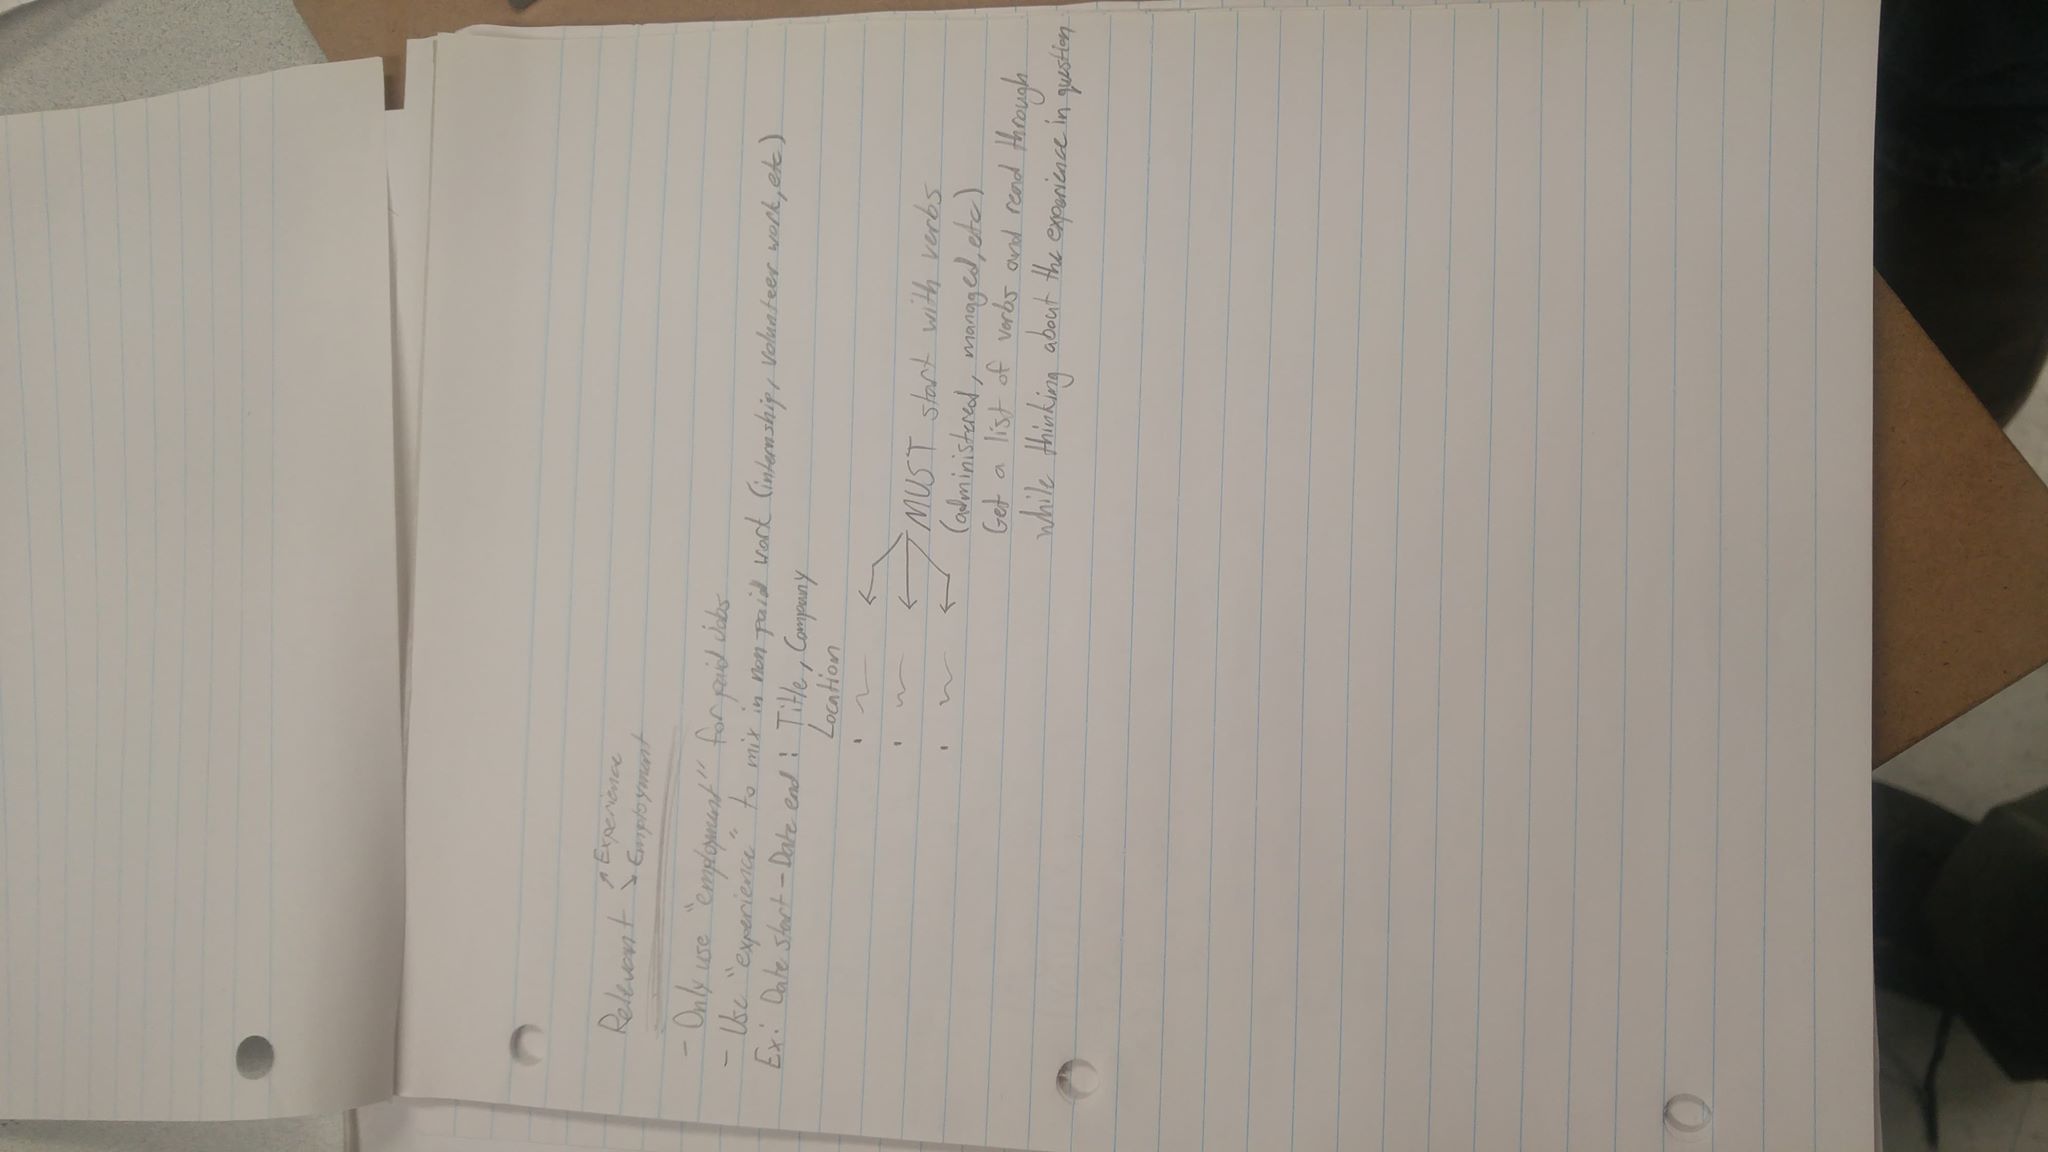 Relevant ↗ Experience
↘ Employment
- Only use "employment" for paid jobs
- Use "experience" to mix in non paid work (internship, volunteer work, etc)
Ex: Date start - Date end : Title, Company
Location
MUST start with verbs
(administered, managed, etc)
Get a list of verbs and read through
while thinking about the experience in question